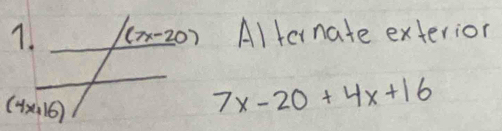 1. (7x-20) Alternate exterior
(4x+16) 7x-20+4x+16